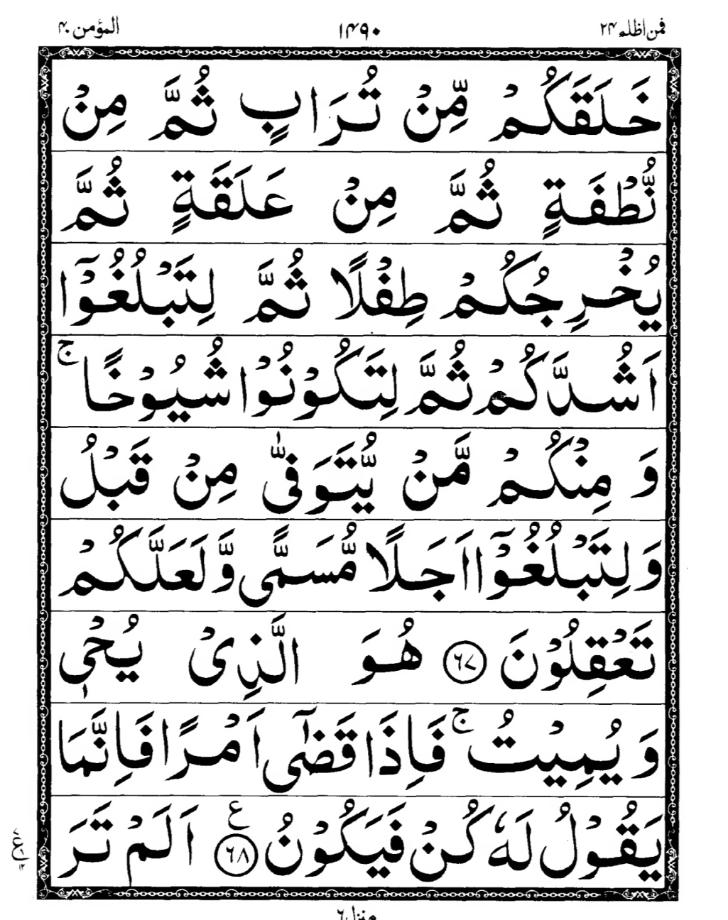 فمن اظلم ۲۴ ۱۴۹۰ المؤمن ۴۰
خَلَقَكُمْ مِّنْ تُرَابٍ ثُمَّ مِنْ
نُّطْفَةٍ ثُمَّ مِنْ عَلَقَةٍ ثُمَّ
يُخْرِجُكُمْ طِفْلًا ثُمَّ لِتَبْلُغُوْٓا
اَشُدَّكُمْ ثُمَّ لِتَكُوْنُوْا شُيُوْخًا ۚ
وَ مِنْكُمْ مَّنْ يُّتَوَفّٰى مِنْ قَبْلُ
وَلِتَبْلُغُوْٓا اَجَلًا مُّسَمًّى وَّلَعَلَّكُمْ
تَعْقِلُوْنَ ﴿۶۷﴾ هُوَ الَّذِىْ يُحْىٖ
وَيُمِيْتُ ۚ فَاِذَا قَضٰٓى اَمْرًا فَاِنَّمَا
يَقُوْلُ لَهٗ كُنْ فَيَكُوْنُ ﴿۶۸﴾ ع اَلَمْ تَرَ
منزل ۶